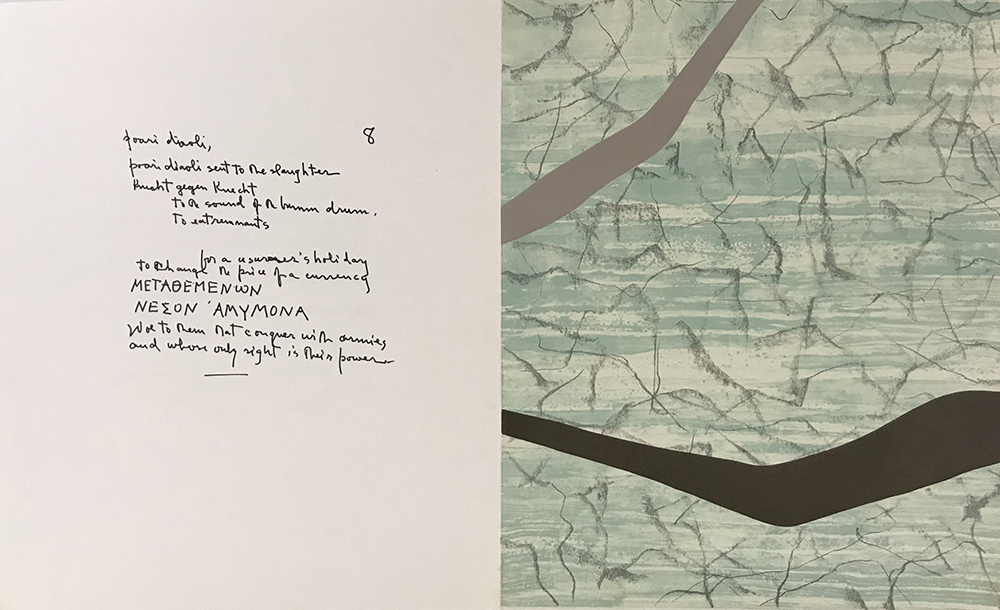 8
poari diaoli,
poari diaoli sent to the slaughter
Knecht gegen Knecht
to the sound of the bumm drum,
to eat remnants
for a usurer's holiday
to change the price of a currency
ΜΕΤΑΘΕΜΕΝΩΝ
ΝΕΣΟΝ ῾ΑΜΥΜΟΝΑ
Woe to them that conquer with armies
and whose only right is their power